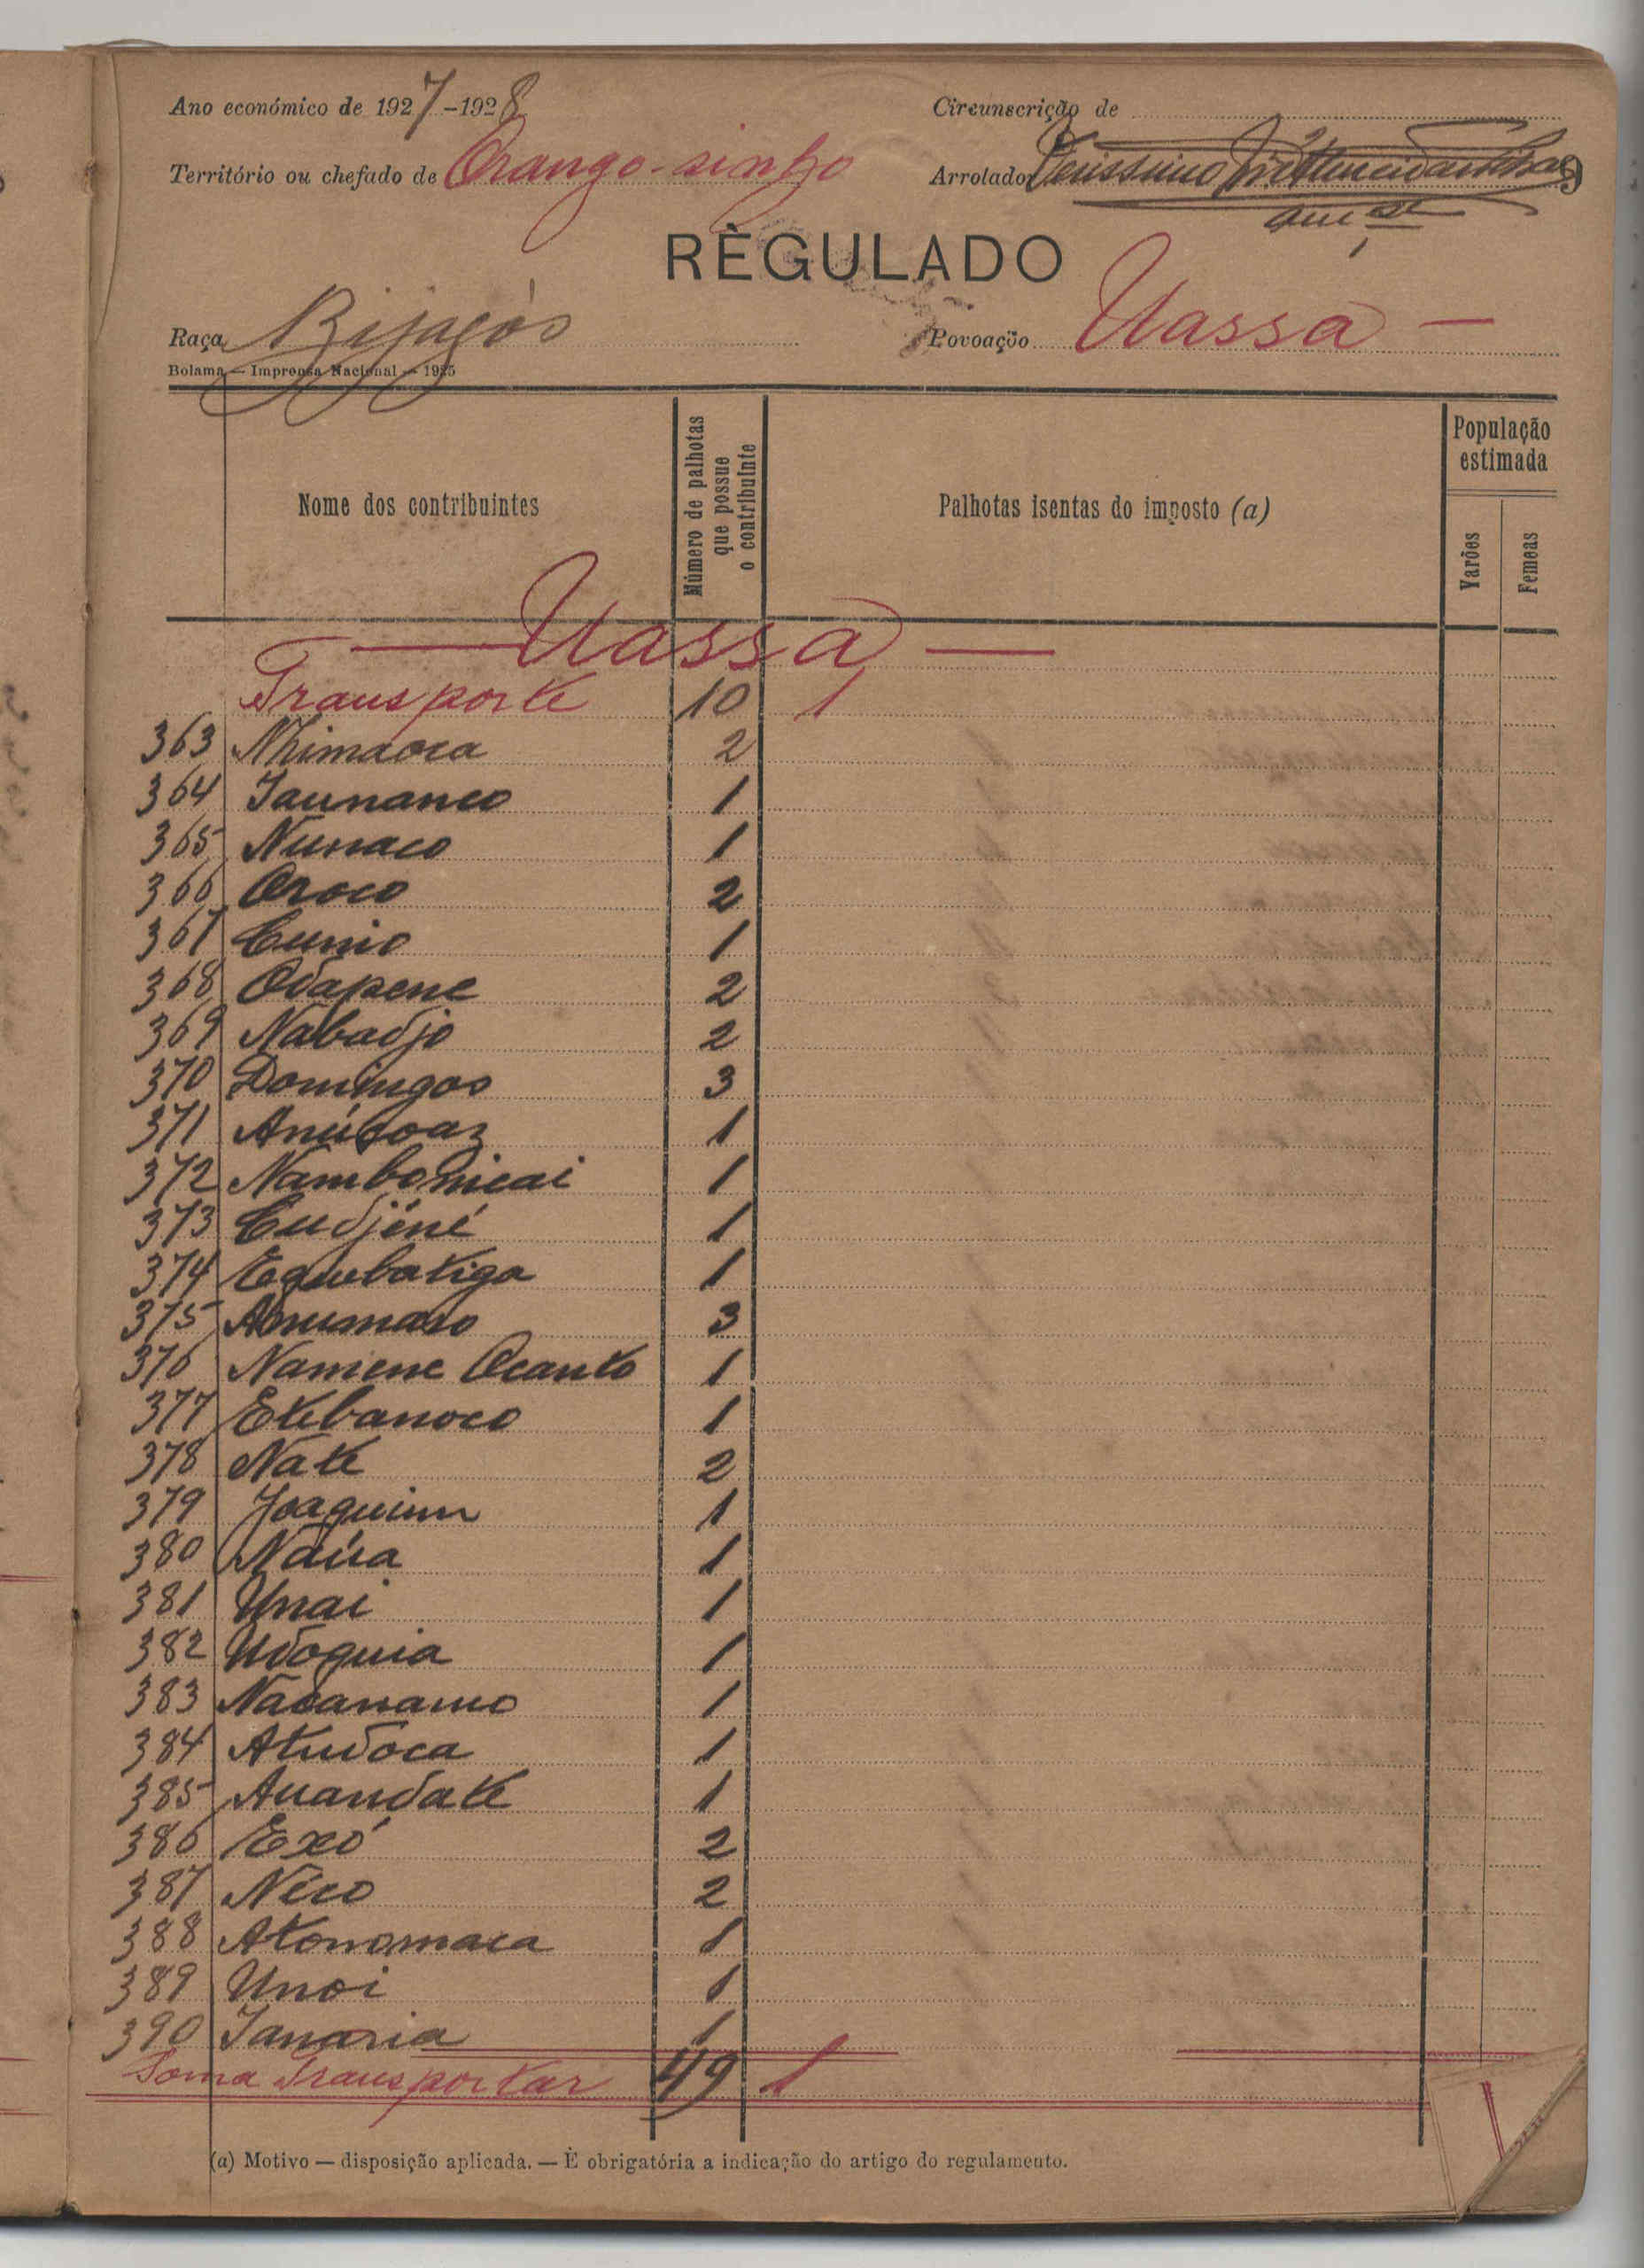 Ano económico de 1927-1928
Circunscrição de
Território ou chefado de Orango-simbo
Arrolador Verissimo
REGULADO
Raça Bijagós
Povoação Uassá —
Bolama — Imprensa Nacional — 1925
Nome dos contribuintes
Número de palhotas que possue o contribuinte
Palhotas isentas do imposto (a)
População estimada
Varões
Femeas
— Uassá —
Transporte 10 1
363 Nhimaoca 2
364 Iaunanco 1
365 Nunaco 1
366 Oroco 2
367 Cunio 1
368 Odapene 2
369 Nabadjo 2
370 Domingos 3
371 1
372 Nambonicai 1
373 Cudjéné 1
374 Equebatiga 1
375 3
376 Namene Ocanto 1
377 Etebanoco 1
378 Nate 2
379 Joaquim 1
380 Naúa 1
381 Unai 1
382 Udoquia 1
383 1
384 Atudoca 1
385 Auandate 1
386 Exó 2
387 Néco 2
388 Atonomaca 1
389 Unoi 1
390 Ianaria 1
Soma Transportar 49 1
(a) Motivo — disposição aplicada. — È obrigatória a indicação do artigo do regulamento.